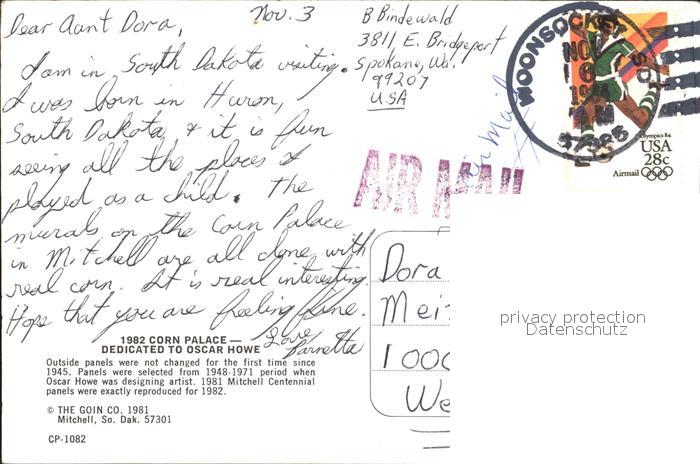 Dear Aunt Dora,
Nov. 3
I am in South Dakota visiting.
I was born in Huron,
South Dakota & it is fun
seeing all the places I
played as a child. The
murals on the Corn Palace
in Mitchell are all done with
real corn. It is real interesting.
Hope that you are feeling fine.
Love
Barnetta
B Bindewald
3811 E. Bridgeport
Spokane, Wa.
99207
USA
Air Mail
AIR MAIL
WOONSOCKET
NOV
6
AM
57385
SD
Olympics 84
USA
28c
Airmail
Dora
Mei
1000
We
privacy protection
Datenschutz
1982 CORN PALACE —
DEDICATED TO OSCAR HOWE
Outside panels were not changed for the first time since
1945. Panels were selected from 1948-1971 period when
Oscar Howe was designing artist. 1981 Mitchell Centennial
panels were exactly reproduced for 1982.
© THE GOIN CO. 1981
Mitchell, So. Dak. 57301
CP-1082